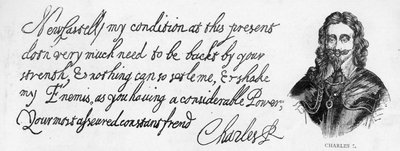 Newcastell, my condition at this present
doth very much need to be backt by your
strenth, & nothing can so setle me, & shake
my Enemis, as you having a considerable Power,
Your most asseured constant frend
Charles R
CHARLES I.